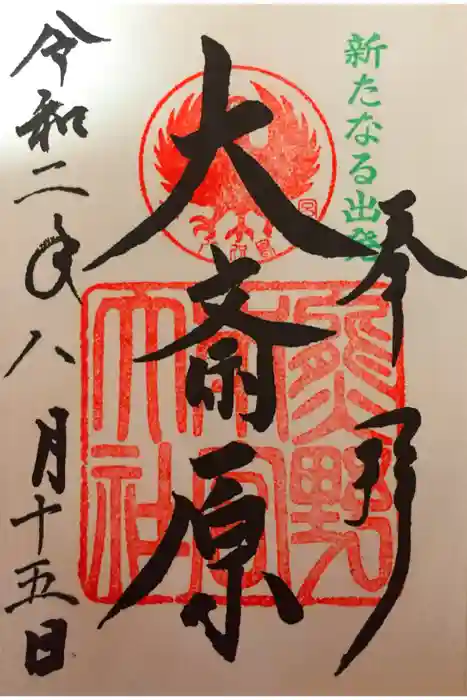 新たなる出発
奉拝
大斎原
熊野本宮大社
令和二年八月十五日